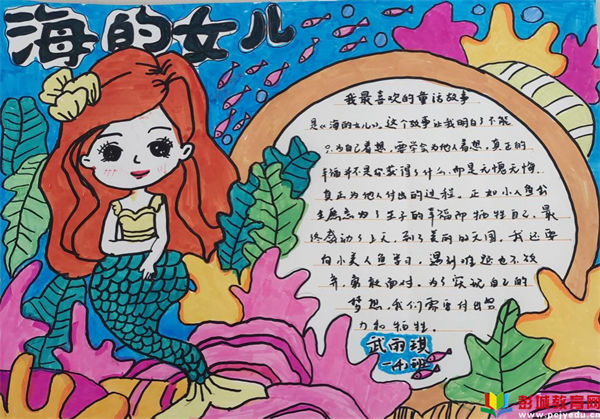 海的女儿
我最喜欢的童话故事
是《海的女儿》,这个故事让我明白了不能
只为自己着想,要学会为他人着想,真正的
幸福不是你获得了什么,而是无愧无悔
真正为他人付出的过程。正如小人鱼公
主愿意为了王子的幸福而牺牲自己,最
终感动了上天,到了美丽的天国。我还要
向小美人鱼学习,遇到难题也不放
弃,勇敢面对。为了实现自己的
梦想,我们需要付出努
力和牺牲。
武雨琪
彭城教育网
www.pejyedu.cn